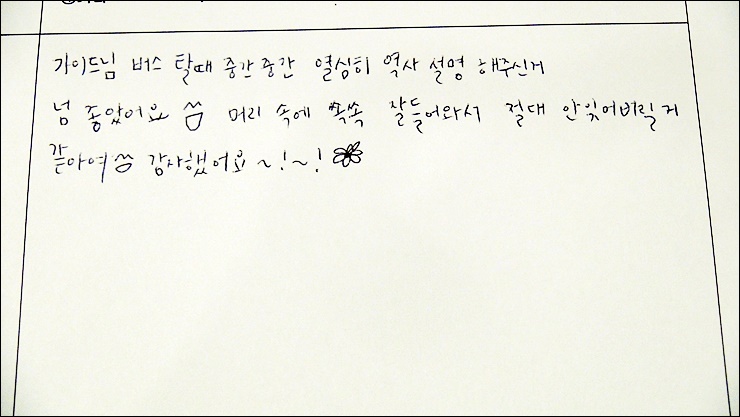 가이드님 버스 탈때 중간중간 열심히 역사 설명 해주신거
넘 좋았어요 머리 속에 쏙쏙 잘들어와서 절대 안잊어버릴거
같아여 감사했어요~!~!